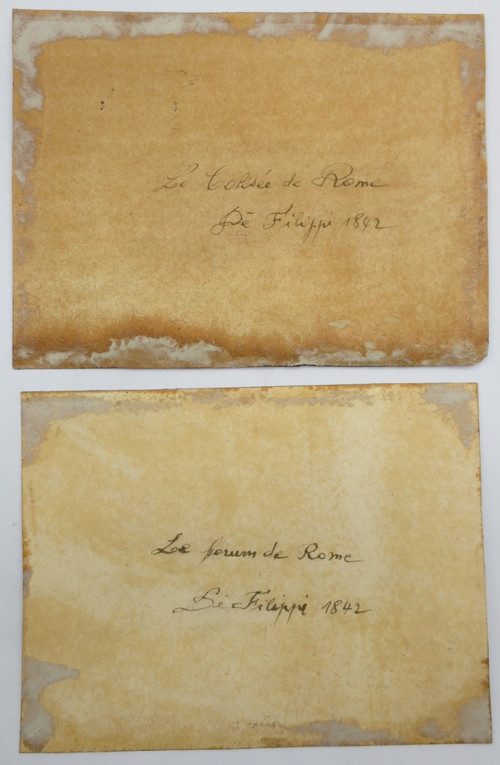 Le Colisée de Rome
De Filippi 1842
Le forum de Rome
De Filippi 1842